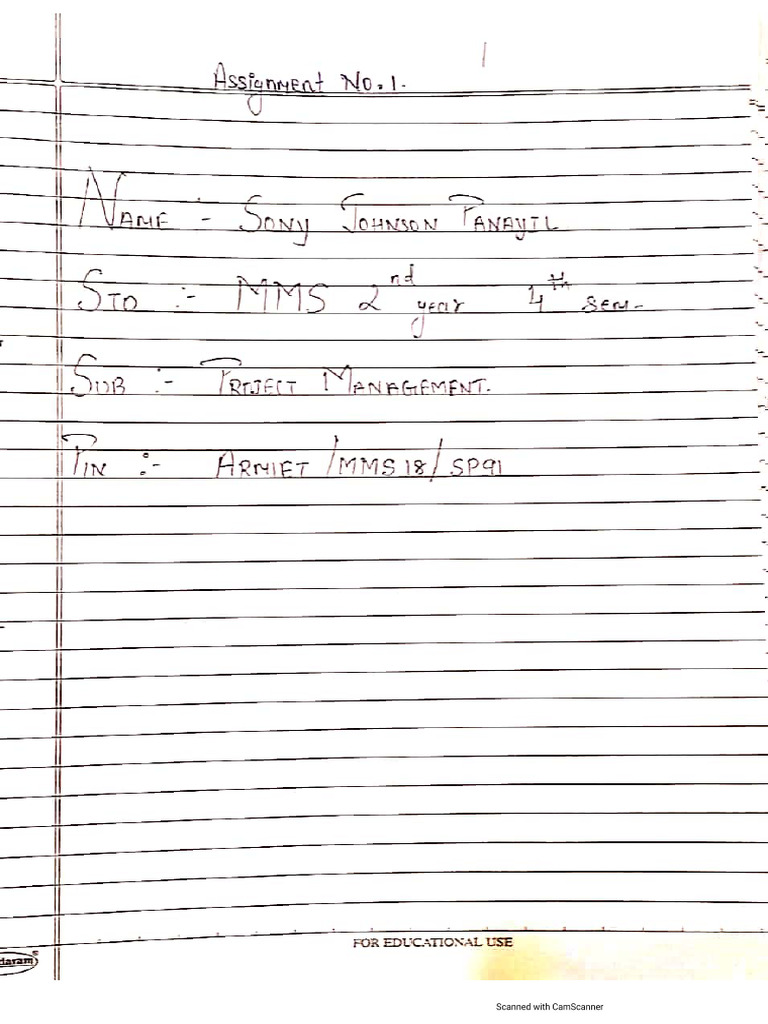 1
Assignment No.1.
NAME :- SONY JOHNSON PANAYIL
STD :- MMS 2nd year 4th sem.
SUB :- PROJECT MANAGEMENT.
PIN :- ARMIET/MMS18/SP91
FOR EDUCATIONAL USE
Scanned with CamScanner